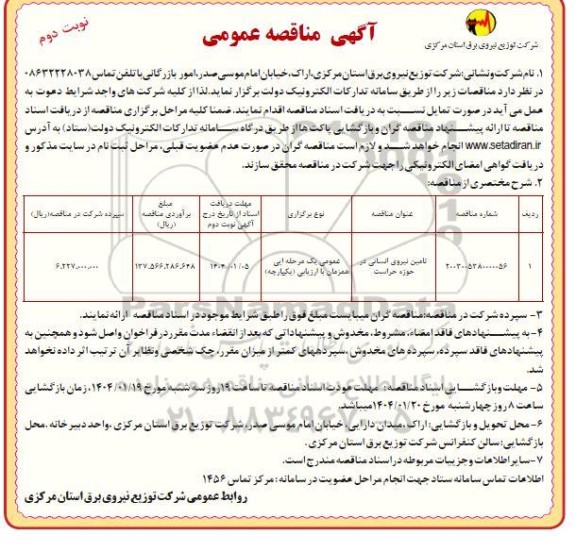 نوبت دوم
آگهی مناقصه عمومی
شرکت توزیع نیروی برق استان مرکزی
۱. نام شرکت ونشانی:شرکت توزیع نیروی برق استان مرکزی،اراک،خیابان امام موسی صدر،امور بازرگانی با تلفن تماس ۰۸۶۳۲۲۲۸۰۳۸
در نظر دارد مناقصات زیر را از طریق سامانه تدارکات الکترونیک دولت برگزار نماید.لذا از کلیه شرکت های واجد شرایط دعوت به
عمل می آید در صورت تمایل نسبت به دریافت اسناد مناقصه اقدام نمایند. ضمنا کلیه مراحل برگزاری مناقصه از دریافت اسناد
مناقصه تا ارائه پیشنهاد مناقصه گران و بازگشایی پاکت ها از طریق درگاه سامانه تدارکات الکترونیک دولت(ستاد) به آدرس
www.setadiran.ir انجام خواهد شد و لازم است مناقصه گران در صورت عدم عضویت قبلی، مراحل ثبت نام در سایت مذکور و
دریافت گواهی امضای الکترونیکی را جهت شرکت در مناقصه محقق سازند.
۲. شرح مختصری از مناقصه:
ردیف شماره مناقصه عنوان مناقصه نوع برگزاری مهلت دریافت اسناد از تاریخ درج آگهی نوبت دوم مبلغ برآوردی مناقصه (ریال) سپرده شرکت در مناقصه(ریال)
۱ تامین نیروی انسانی در حوزه حراست عمومی یک مرحله ایی همزمان با ارزیابی (یکپارچه) ۱۴۰۴/۰۱/۰۵ ۱۳۷,۵۶۶,۲۸۶,۶۴۸ ۶,۲۲۷,۰۰۰,۰۰۰
۳- سپرده شرکت در مناقصه:مناقصه گران میبایست مبلغ فوق را طبق شرایط موجود در اسناد مناقصه ارائه نمایند.
۴- به پیشنهادهای فاقد امضاء، مشروط، مخدوش و پیشنهاداتی که بعد از انقضاء مدت مقرر در فراخوان واصل شود و همچنین به
پیشنهادهای فاقد سپرده، سپرده های مخدوش، سپردههای کمتر از میزان مقرر، چک شخصی ونظایر آن ترتیب اثر داده نخواهد
شد.
۵- مهلت وبازگشایی اسناد مناقصه: مهلت عودت اسناد مناقصه تا ساعت ۱۹روز سه شنبه مورخ ۱۴۰۴/۰۱/۱۹، زمان بازگشایی
ساعت ۸ روز چهارشنبه مورخ ۱۴۰۴/۰۱/۲۰میباشد.
۶- محل تحویل و بازگشایی: اراک،میدان دارایی، خیابان امام موسی صدر، شرکت توزیع برق استان مرکزی ،واحد دبیرخانه .محل
بازگشایی:سالن کنفرانس شرکت توزیع برق استان مرکزی.
۷-سایر اطلاعات و جزییات مربوطه در اسناد مناقصه مندرج است.
اطلاعات تماس سامانه ستاد جهت انجام مراحل عضویت در سامانه: مرکز تماس ۱۴۵۶
روابط عمومی شرکت توزیع نیروی برق استان مرکزی